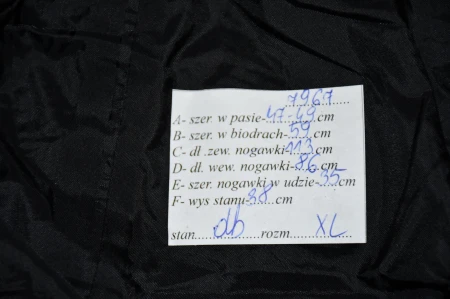 7967
A- szer. w pasie-47-49.cm
B- szer. w biodrach-59.cm
C- dł .zew. nogawki-113.cm
D- dł. wew. nogawki-86.cm
E- szer. nogawki w udzie-35cm
F- wys stanu-38....cm
stan............db............rozm......XL......